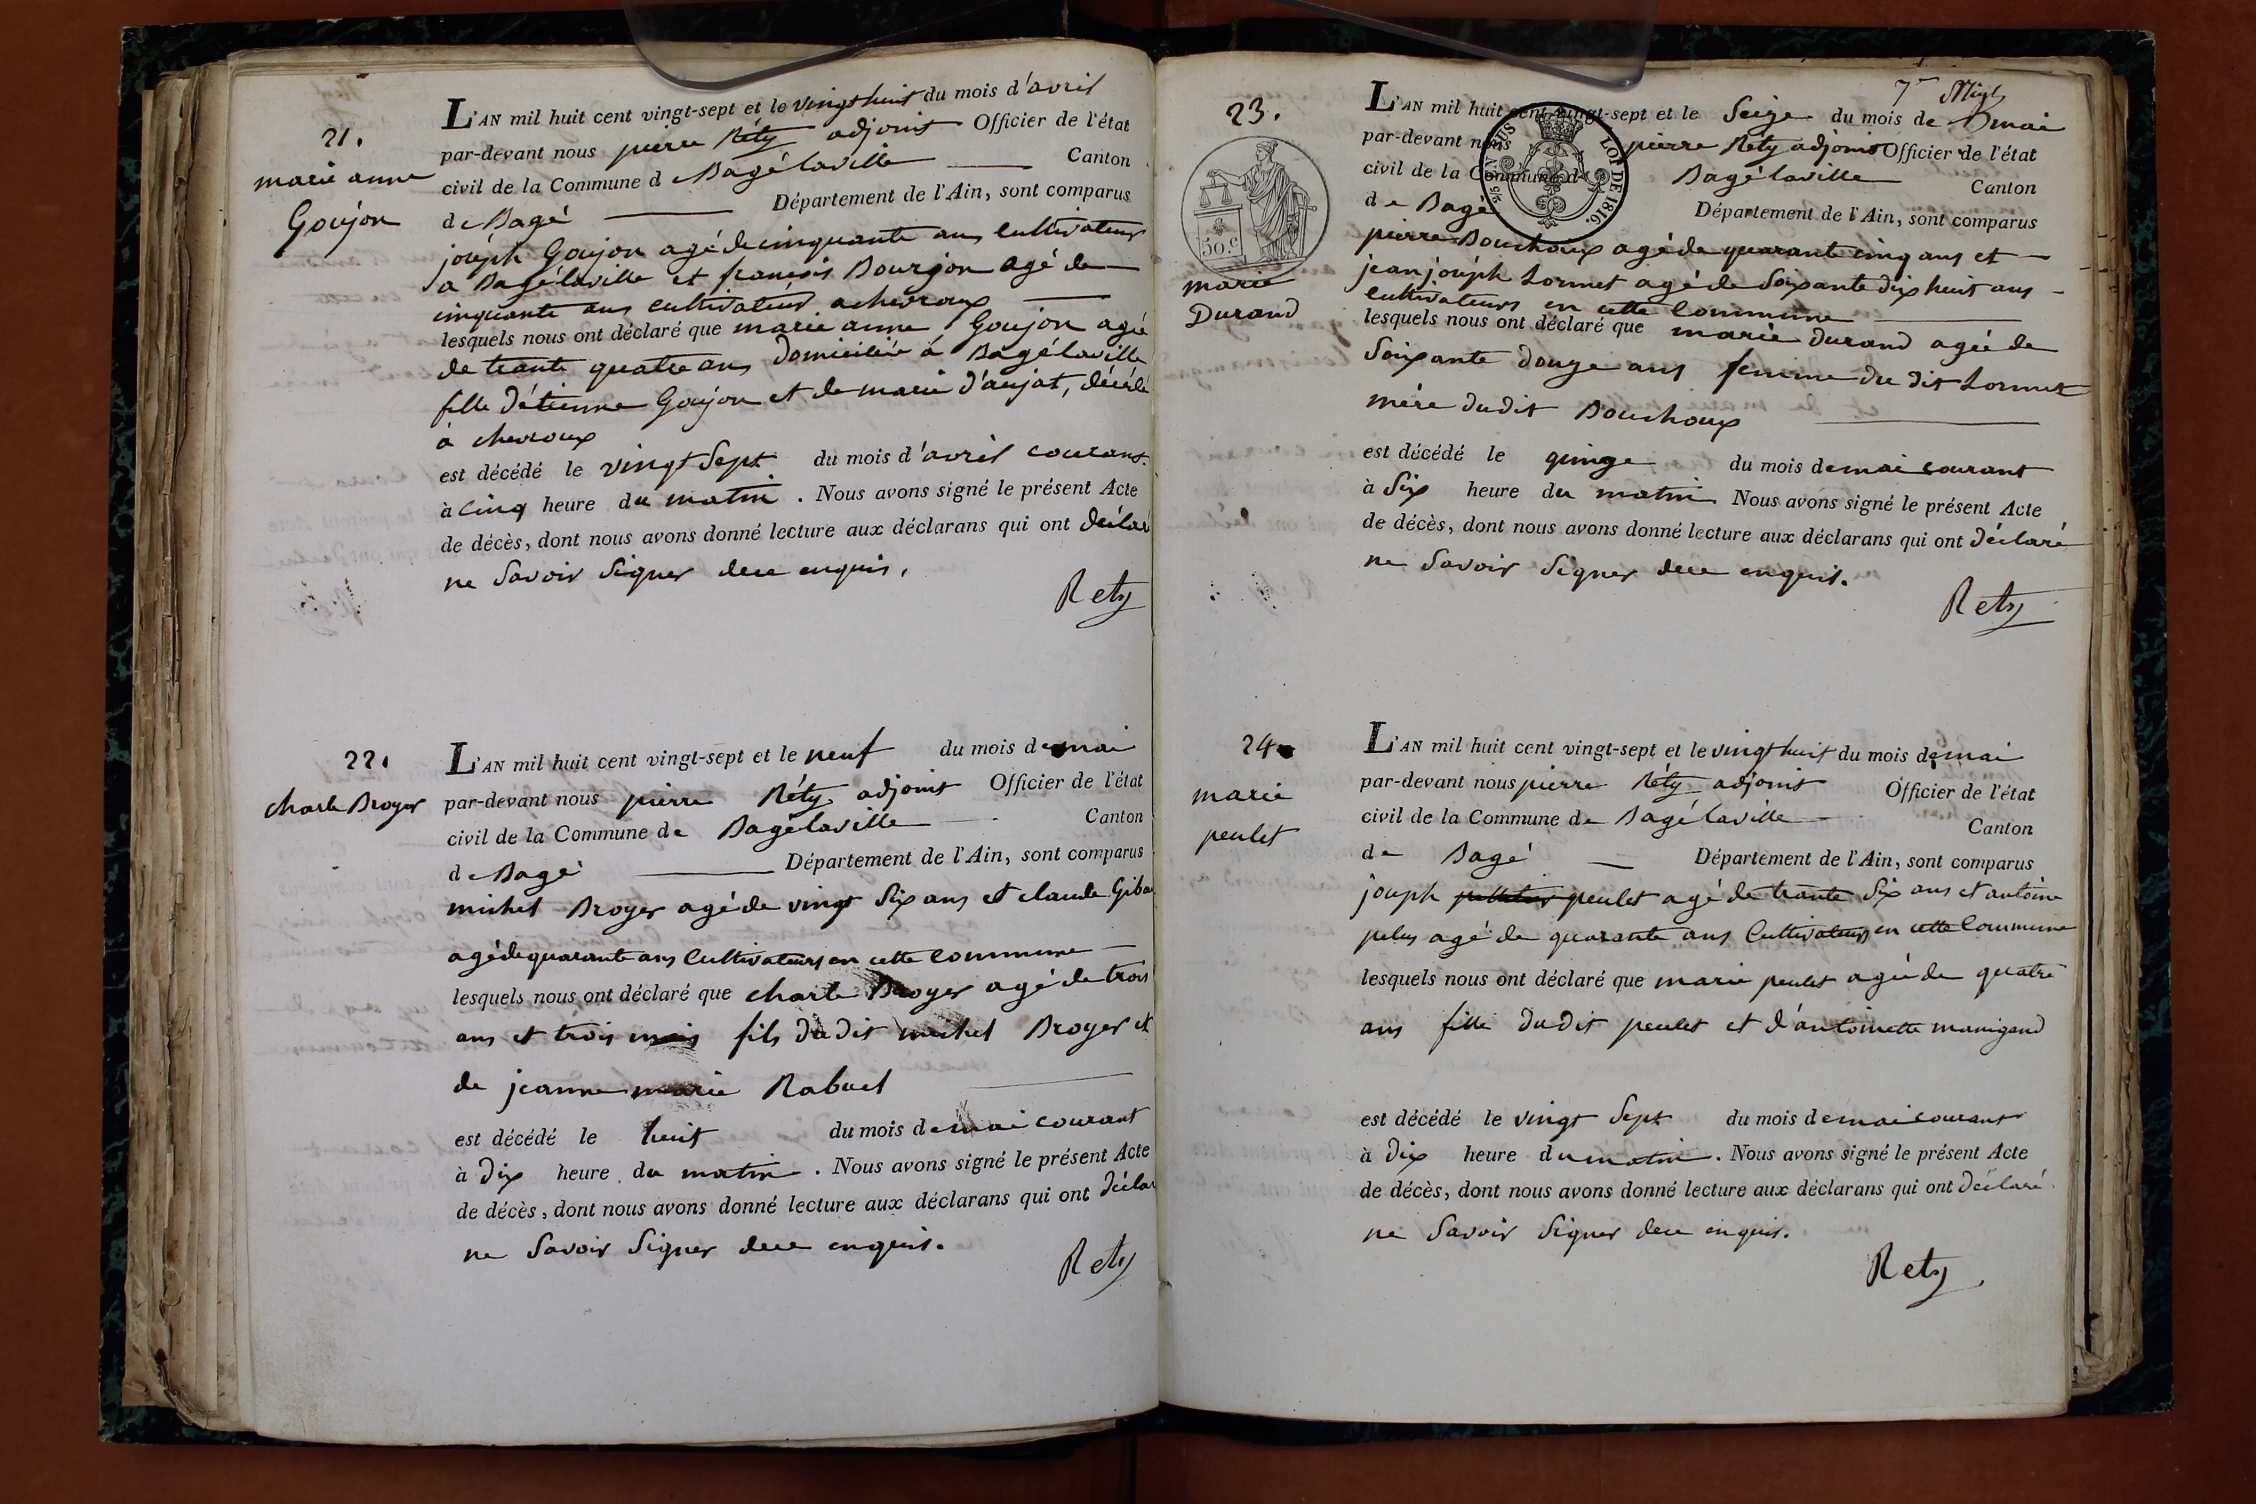 21.
marie anne
Goujon
L'AN mil huit cent vingt-sept et le vingt huit du mois d'avril
par-devant nous pierre Réty adjoint Officier de l'état
civil de la Commune d Bagélaville Canton
de Bagé Département de l'Ain, sont comparus
joséph Goujon agé de cinquante ans cultivateur
a Bagélaville et françois Bourjon agé de
cinquante ans cultivateur a chevroux
lesquels nous ont déclaré que marie anne Goujon agée
de trante quatre ans domiciliée á Bagélaville
fille d'étienne Goujon et de marie d'aujat, décédé
á chevroux
est décédé le vingt Sept du mois d'avril courant.
à cinq heure du matin. Nous avons signé le présent Acte
de décès, dont nous avons donné lecture aux déclarans qui ont déclaré
ne Savoir Signer dece enquis.
Rety
22.
charle Broyer
L'AN mil huit cent vingt-sept et le neuf du mois de mai
par-devant nous pierre Réty adjoint Officier de l'état
civil de la Commune de Bagélaville Canton
de Bagé Département de l'Ain, sont comparus
michel Broyer agé de vingt Six ans et claude
agé de quarante ans Cultivateurs en cette commune
lesquels nous ont déclaré que charle Broyer agé de trois
ans et trois mois fils du dit michel Broyer et
de jeanne marie Rabuel
est décédé le huit du mois de mai courant
à dix heure du matin. Nous avons signé le présent Acte
de décès, dont nous avons donné lecture aux déclarans qui ont déclar
ne Savoir Signer dece enquis.
Rety
7e
23.
50 c
marie
Durand
L'AN mil huit cent vingt-sept et le Seize du mois de mai
par-devant nous pierre Réty adjoint Officier de l'état
civil de la Commune d Bagélaville Canton
de Bagé Département de l'Ain, sont comparus
LOI DE 1816.
pierre Bouchoux agé de quarante cinq ans et
jean joséph Lormet agé de Soixante dix huit ans
cultivateurs en cette Commune
lesquels nous ont déclaré que marie durand agée de
Soixante douze ans femme du dit Lormet
mére du dit Bouchoux
est décédé le quinze du mois de mai courant
à Six heure du matin Nous avons signé le présent Acte
de décès, dont nous avons donné lecture aux déclarans qui ont déclaré
ne Savoir Signer dece enquis.
Rety
24
marie
peulet
L'AN mil huit cent vingt-sept et le vingt huit du mois de mai
par-devant nous pierre Réty adjoint Officier de l'état
civil de la Commune de Bagélaville Canton
de Bagé Département de l'Ain, sont comparus
joseph peulet agé de trante Six ans et antoine
agé de quarante ans Cultivateurs en cette Commune
lesquels nous ont déclaré que marie peulet agée de quatre
ans fille du dit peulet et d'antoinette manigand
est décédé le vingt Sept du mois de mai courant
à dix heure du matin. Nous avons signé le présent Acte
de décès, dont nous avons donné lecture aux déclarans qui ont déclaré
ne Savoir Signer dece enquis.
Rety